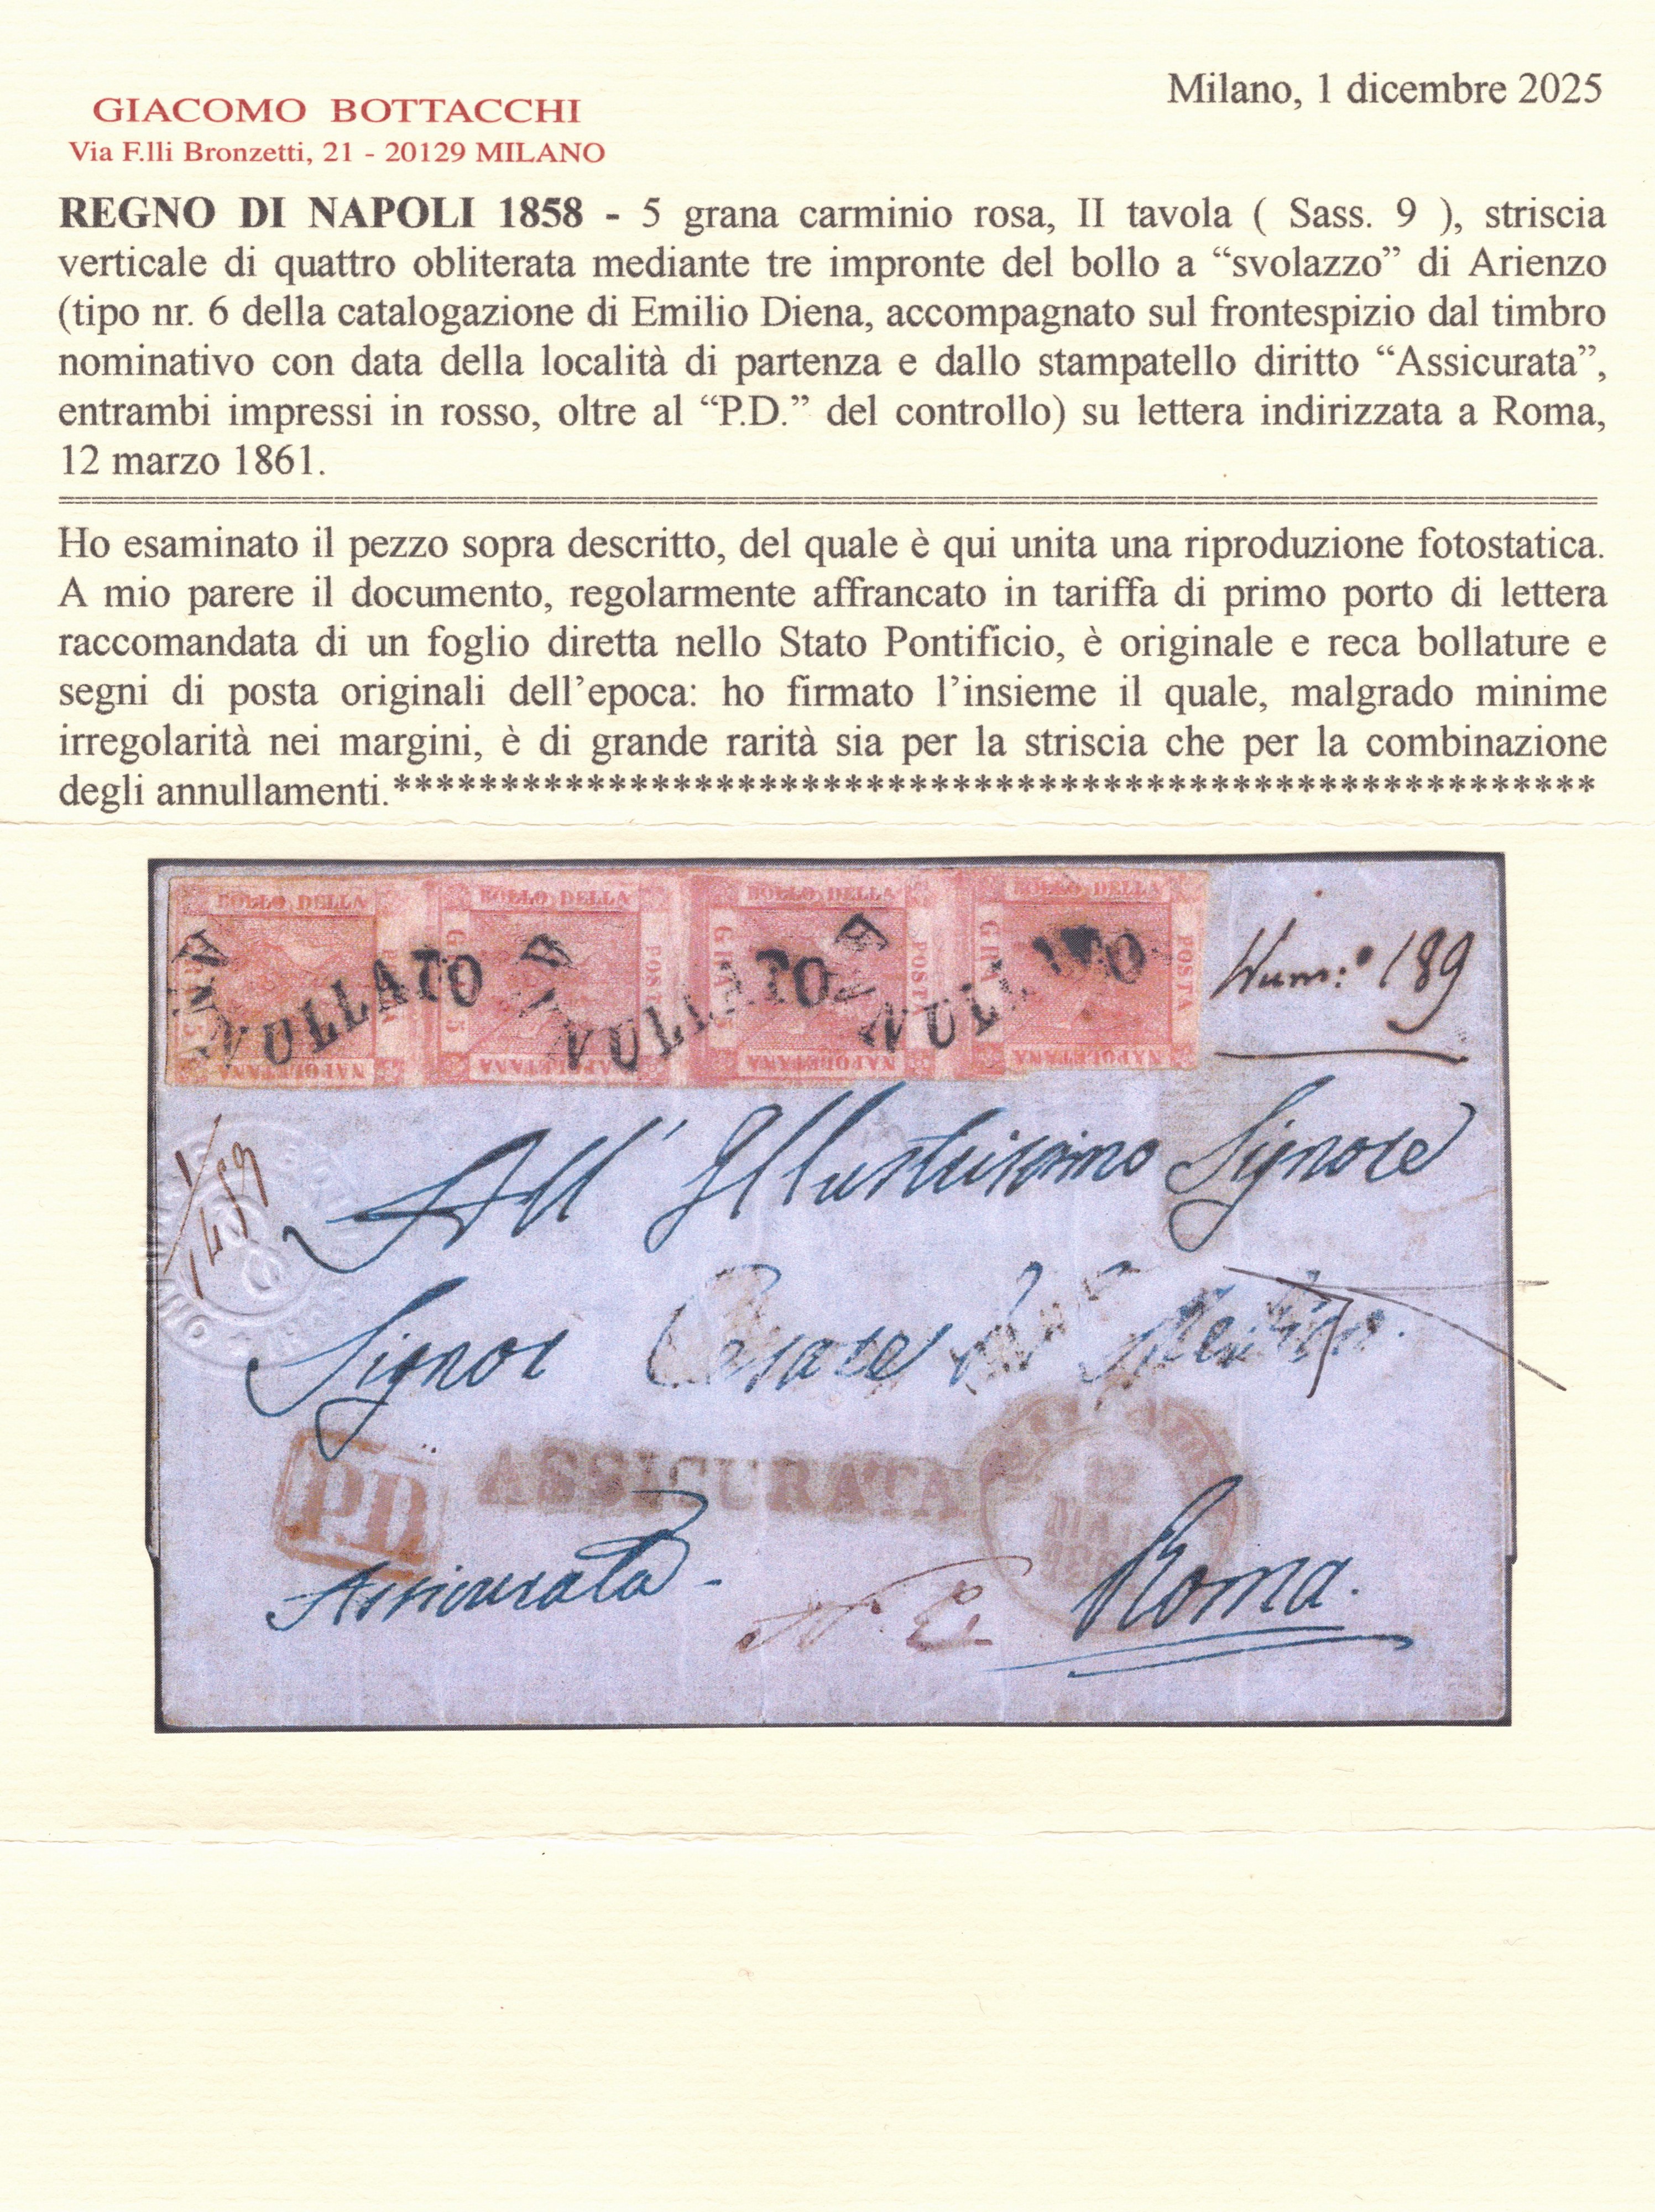 Milano, 1 dicembre 2025
GIACOMO BOTTACCHI
Via F.lli Bronzetti, 21 - 20129 MILANO
REGNO DI NAPOLI 1858 - 5 grana carminio rosa, II tavola ( Sass. 9 ), striscia
verticale di quattro obliterata mediante tre impronte del bollo a “svolazzo” di Arienzo
(tipo nr. 6 della catalogazione di Emilio Diena, accompagnato sul frontespizio dal timbro
nominativo con data della località di partenza e dallo stampatello diritto “Assicurata”,
entrambi impressi in rosso, oltre al “P.D.” del controllo) su lettera indirizzata a Roma,
12 marzo 1861.
Ho esaminato il pezzo sopra descritto, del quale è qui unita una riproduzione fotostatica.
A mio parere il documento, regolarmente affrancato in tariffa di primo porto di lettera
raccomandata di un foglio diretta nello Stato Pontificio, è originale e reca bollature e
segni di posta originali dell’epoca: ho firmato l’insieme il quale, malgrado minime
irregolarità nei margini, è di grande rarità sia per la striscia che per la combinazione
degli annullamenti.********************************************************
BOLLO DELLA BOLLO DELLA BOLLO DELLA BOLLO DELLA
GRANA 5 POSTA GRA 5 POSTA GRA POSTA
ANNULLATO ANNULLATO ANNULLATO
NAPOLETANA NAPOLETANA NAPOLETANA NAPOLETANA
Num:° 189
All' Illustrissimo Signore
Signor Cesare
P.D. ASSICURATA
12
MAR
Assicurata - Roma.